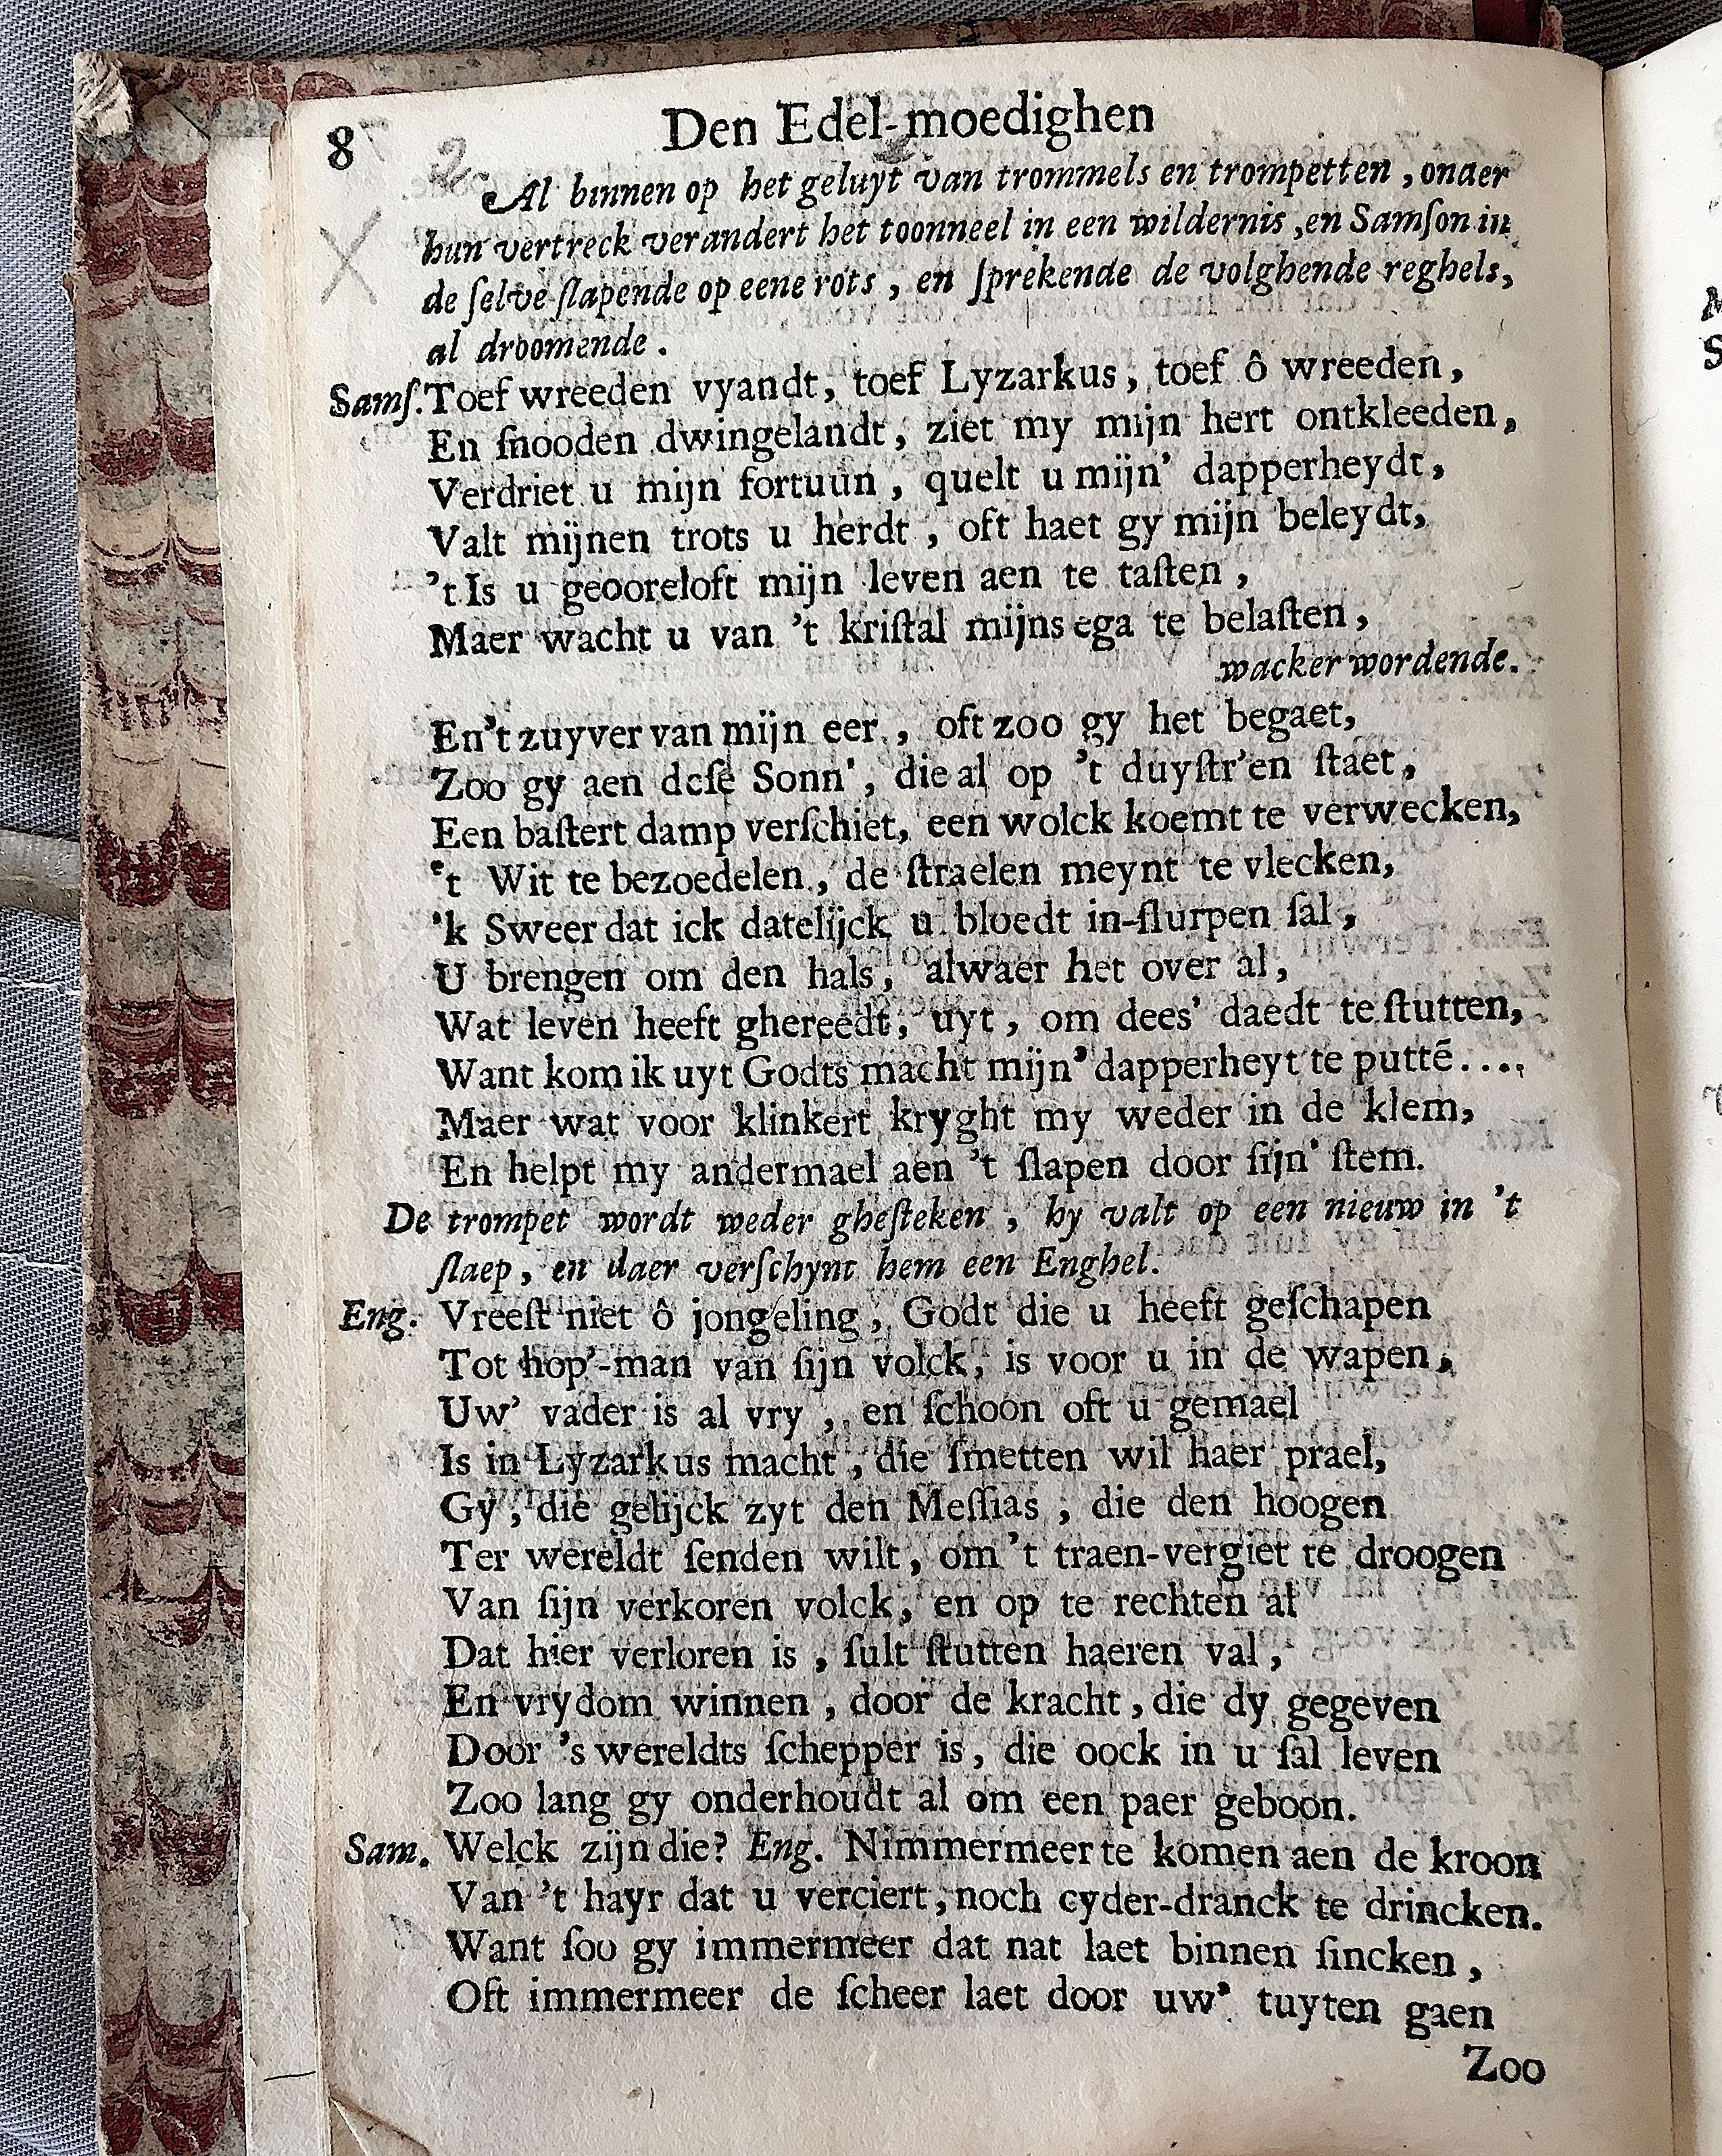 8 Den Edel-moedighen
2
Al binnen op het geluyt van trommels en trompetten, onder
hun vertreck verandert het toonneel in een wildernis, en Samſon in
de ſelve ſlapende op eene rots, en ſprekende de volghende reghels,
al droomende.
Samſ. Toef wreeden vyandt, toef Lyzarkus, toef ô wreeden,
En ſnooden dwingelandt, ziet my mijn hert ontkleeden,
Verdriet u mijn fortuun, quelt u mijn' dapperheydt,
Valt mijnen trots u herdt, oft haet gy mijn beleydt,
't Is u geooreloft mijn leven aen te taſten,
Maer wacht u van 't kriſtal mijns ega te belaſten,
wacker wordende.
En't zuyver van mijn eer, oft zoo gy het begaet,
Zoo gy aen deſe Sonn', die al op 't duyſtr'en ſtaet,
Een baſtert damp verſchiet, een wolck koemt te verwecken,
't Wit te bezoedelen, de ſtraelen meynt te vlecken,
'k Sweer dat ick datelijck u bloedt in-ſlurpen ſal,
U brengen om den hals, alwaer het over al,
Wat leven heeft ghereedt, uyt, om dees' daedt te ſtutten,
Want kom ik uyt Godts macht mijn' dapperheyt te puttē....
Maer wat voor klinkert kryght my weder in de klem,
En helpt my andermael aen 't ſlapen door ſijn' ſtem.
De trompet wordt weder gheſteken, hy valt op een nieuw in 't
ſlaep, en daer verſchynt hem een Enghel.
Eng. Vreeſt niet ô jongeling, Godt die u heeft geſchapen
Tot hop'-man van ſijn volck, is voor u in de wapen,
Uw' vader is al vry, en ſchoon oft u gemael
Is in Lyzarkus macht, die ſmetten wil haer prael,
Gy, die gelijck zyt den Meſſias, die den hoogen
Ter wereldt ſenden wilt, om 't traen-vergiet te droogen
Van ſijn verkoren volck, en op te rechten al
Dat hier verloren is, ſult ſtutten haeren val,
En vrydom winnen, door de kracht, die dy gegeven
Door 's wereldts ſchepper is, die oock in u ſal leven
Zoo lang gy onderhoudt al om een paer geboon.
Sam. Welck zijn die? Eng. Nimmermeer te komen aen de kroon
Van 't hayr dat u verciert, noch cyder-dranck te drincken.
Want ſou gy immermeer dat nat laet binnen ſincken,
Oft immermeer de ſcheer laet door uw' tuyten gaen
Zoo